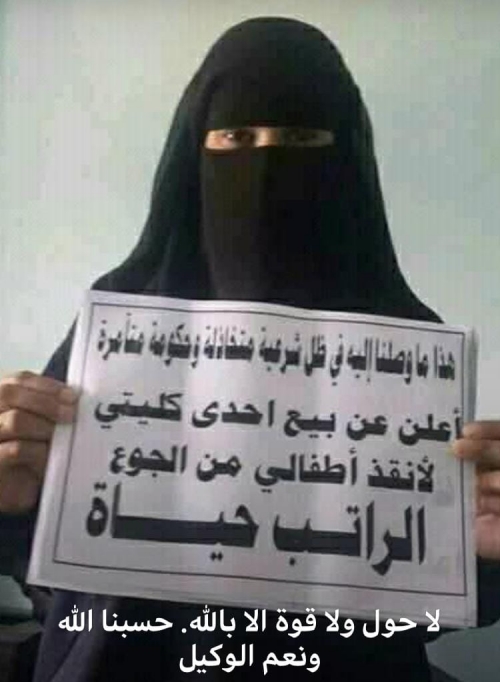 هذا ما وصلنا إليه في ظل شرعية متخاذلة وحكومة متآمرة
أعلن عن بيع احدى كليتي
لأنقذ أطفالي من الجوع
الراتب حياة
لا حول ولا قوة الا بالله. حسبنا الله
ونعم الوكيل